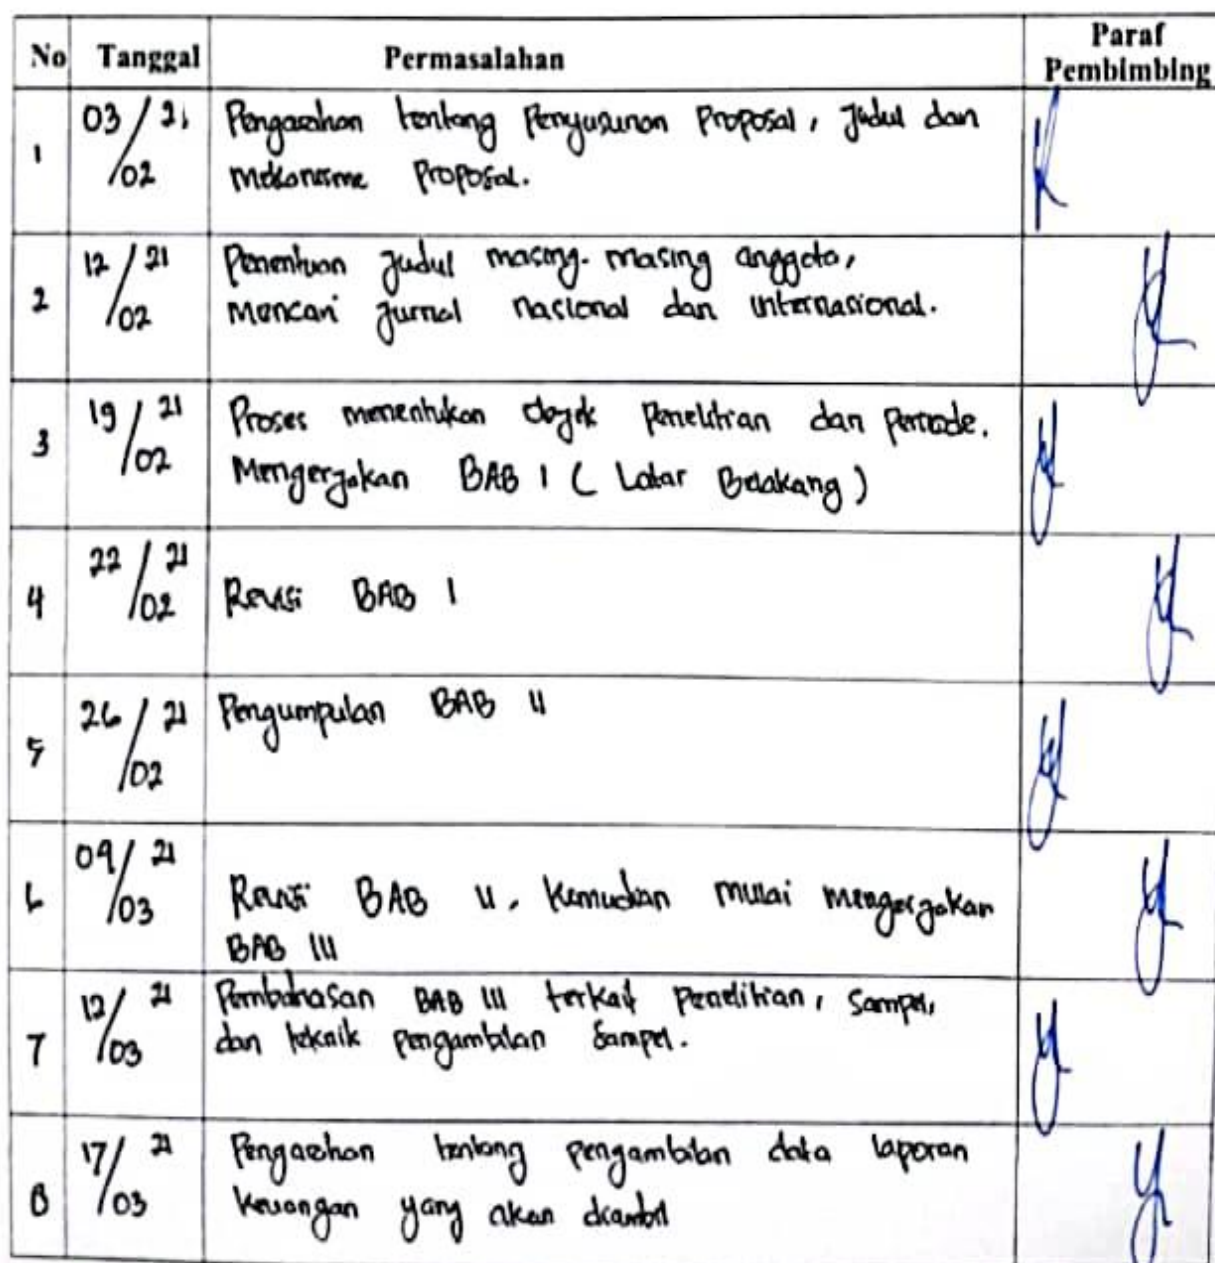 No Tanggal Permasalahan Paraf Pembimbing
1 03/02 21 Pengarahan tentang Penyusunan Proposal, Judul dan
mekanisme Proposal.
2 12/02 21 Penentuan Judul masing-masing anggota,
mencari Jurnal nasional dan internasional.
3 19/02 21 Proses menentukan objek Penelitian dan periode.
Mengerjakan BAB I (Latar Belakang)
4 22/02 21 Revisi BAB I
5 26/02 21 Pengumpulan BAB II
6 09/03 21 Revisi BAB II, Kemudian mulai mengerjakan
BAB III
7 12/03 21 Pembahasan BAB III terkait Penelitian, Sampel,
dan teknik pengambilan Sampel.
8 17/03 21 Pengarahan tentang pengambilan data laporan
keuangan yang akan diambil